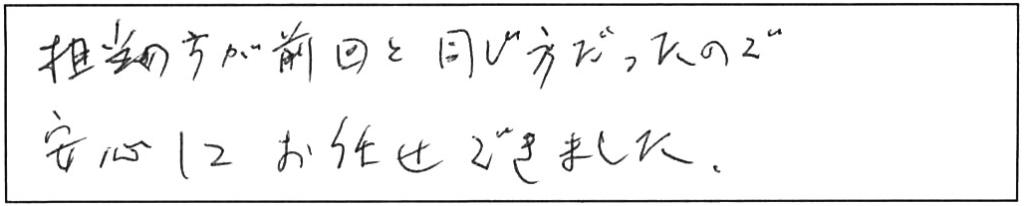 担当の方が前回と同じ方だったので
安心してお任せできました。